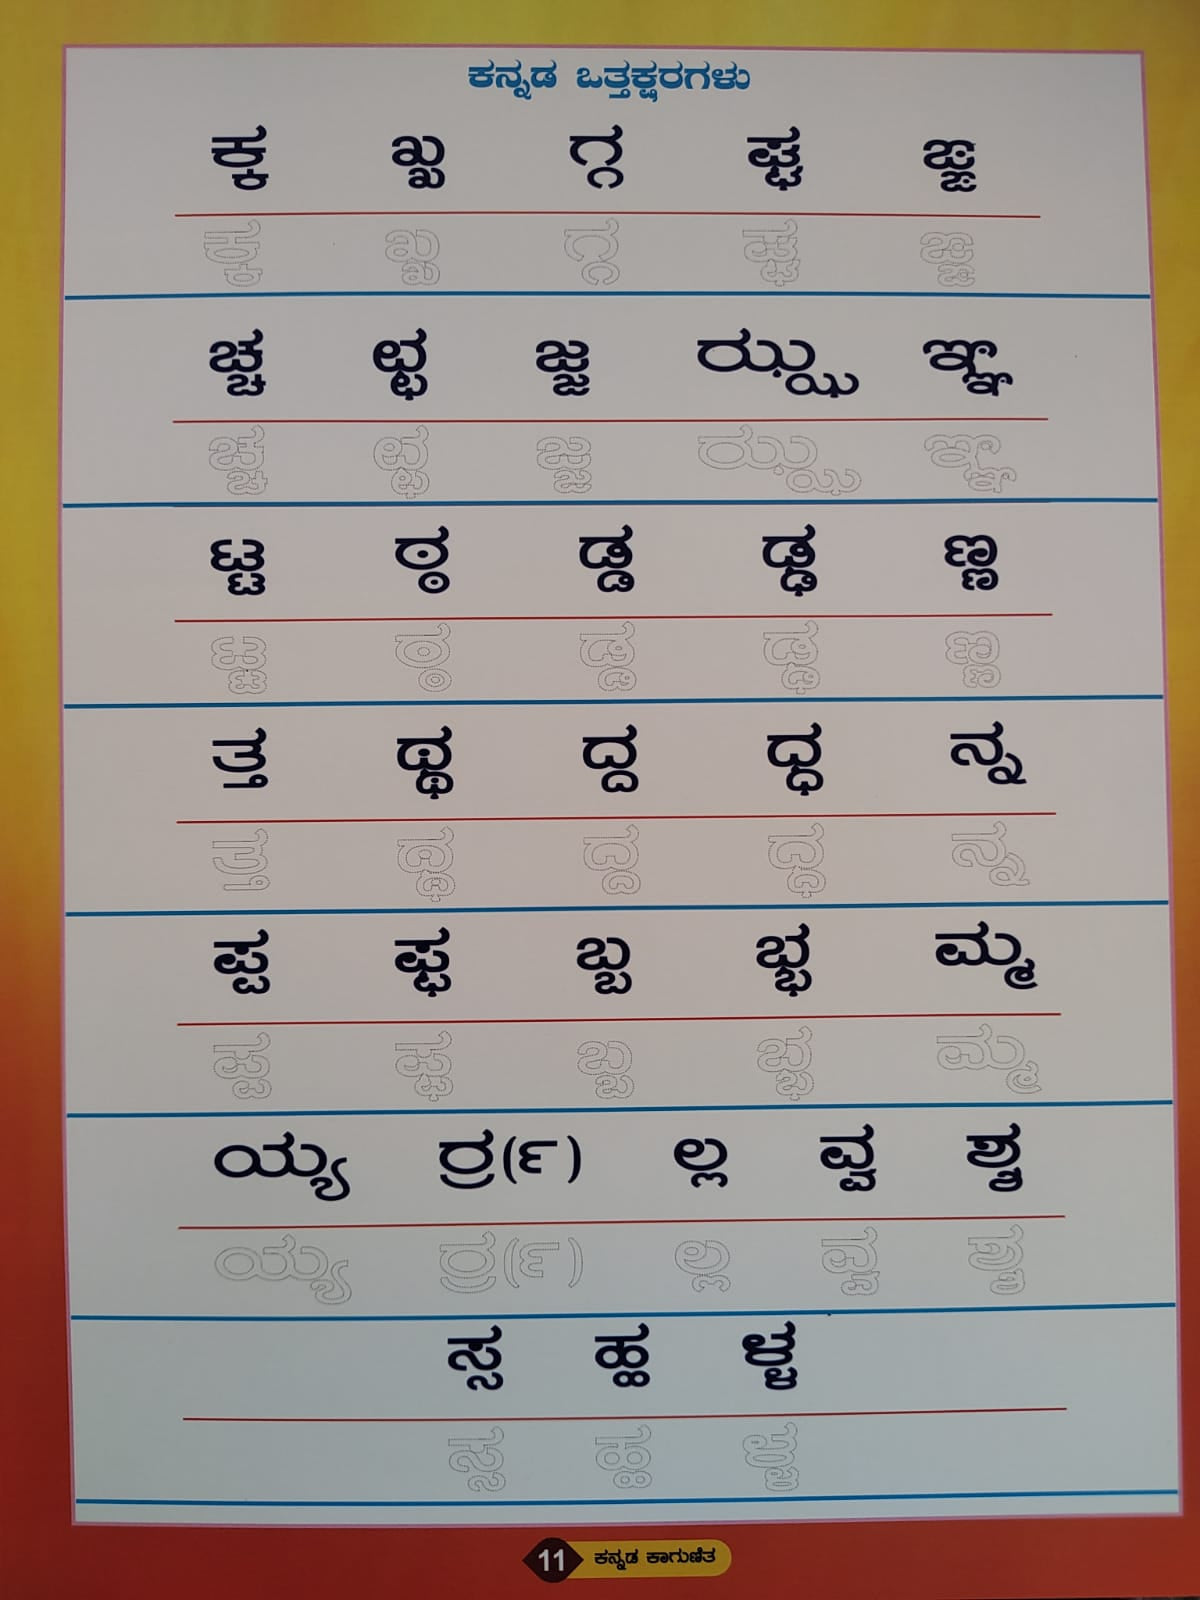 ಕನ್ನಡ ಒತ್ತಕ್ಷರಗಳು
ಕ್ಕ ಖ್ಖ ಗ್ಗ ಘ್ಘ ಙ್ಙ
ಕ್ಕ ಖ್ಖ ಗ್ಗ ಘ್ಘ ಙ್ಙ
ಚ್ಚ ಛ್ಛ ಜ್ಜ ಝ್ಝ ಞ್ಞ
ಚ್ಚ ಛ್ಛ ಜ್ಜ ಝ್ಝ ಞ್ಞ
ಟ್ಟ ಠ್ಠ ಡ್ಡ ಢ್ಢ ಣ್ಣ
ಟ್ಟ ಠ್ಠ ಡ್ಡ ಢ್ಢ ಣ್ಣ
ತ್ತ ಥ್ಥ ದ್ದ ಧ್ಧ ನ್ನ
ತ್ತ ಥ್ಥ ದ್ದ ಧ್ಧ ನ್ನ
ಪ್ಪ ಫ್ಫ ಬ್ಬ ಭ್ಭ ಮ್ಮ
ಪ್ಪ ಫ್ಫ ಬ್ಬ ಭ್ಭ ಮ್ಮ
ಯ್ಯ ರ್‍ರ(೯) ಲ್ಲ ವ್ವ ಶ್ಶ
ಯ್ಯ ರ್‍ರ(೯) ಲ್ಲ ವ್ವ ಶ್ಶ
ಸ್ಸ ಹ್ಹ ಳ್ಳ
ಸ್ಸ ಹ್ಹ ಳ್ಳ
11 ಕನ್ನಡ ಕಾಗುಣಿತ